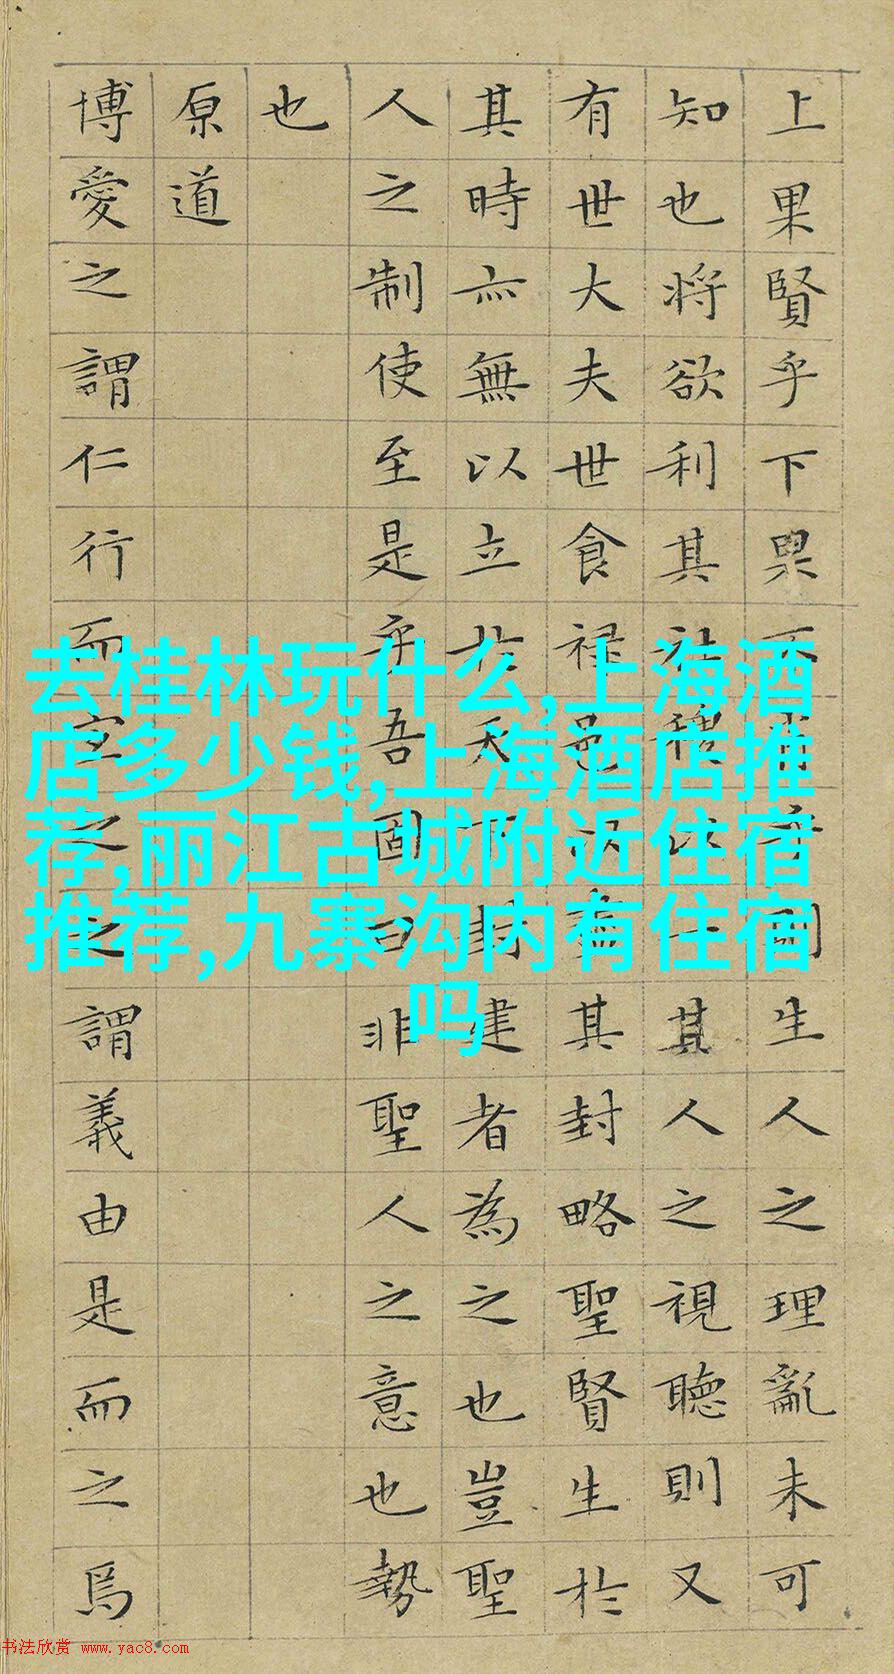 上果賢乎下果不肖乎則生人之理亂未可
知也將欲利其社稷以一其人之視聽則又
有世大夫世食祿邑以盡其封略聖賢生於
其時亦無以立於天下封建者為之也豈聖
人之制使至是乎吾固曰非聖人之意也勢
也
原道
博愛之謂仁行而宜之之謂義由是而之焉
去桂林玩什么,上海酒
店多少钱,上海酒店推
荐,丽江古城附近住宿
推荐,九寨沟内有住宿
吗
书法欣赏 www.yac8.com